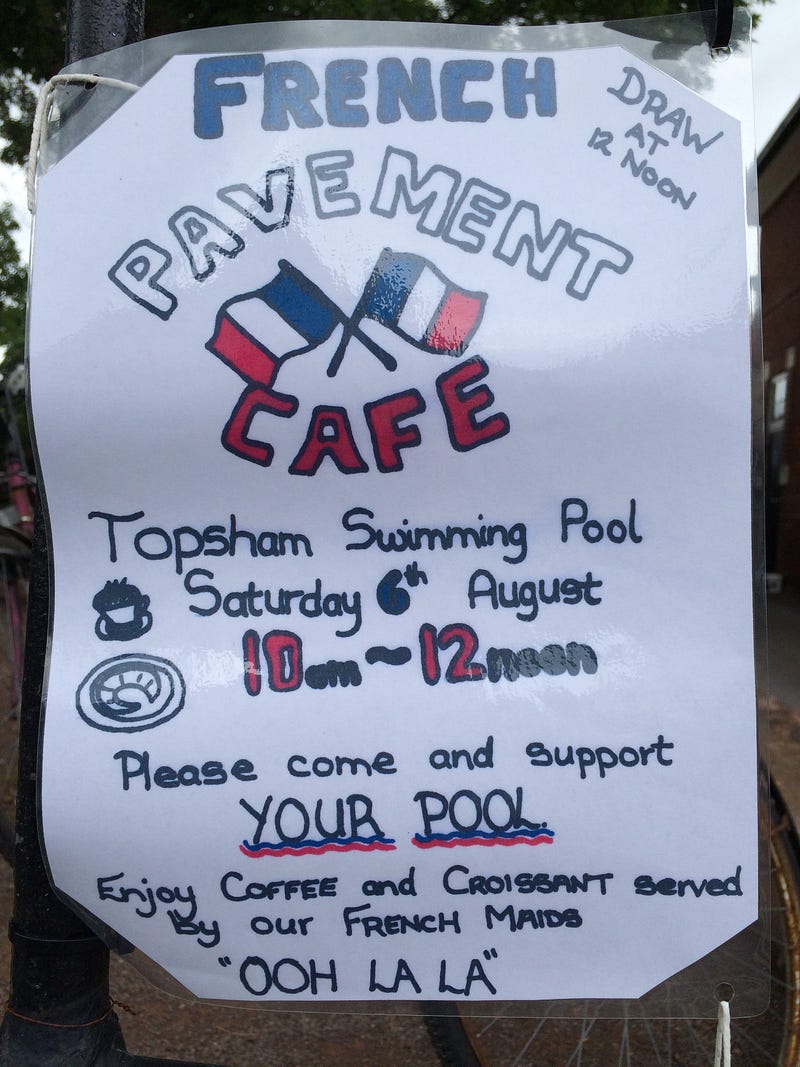 FRENCH
DRAW
AT
12 NOON
PAVEMENT
CAFE
Topsham Swimming Pool
Saturday 6th August
10am ~ 12noon
Please come and support
YOUR POOL.
Enjoy COFFEE and CROISSANT served
by our FRENCH MAIDS
"OOH LA LA"